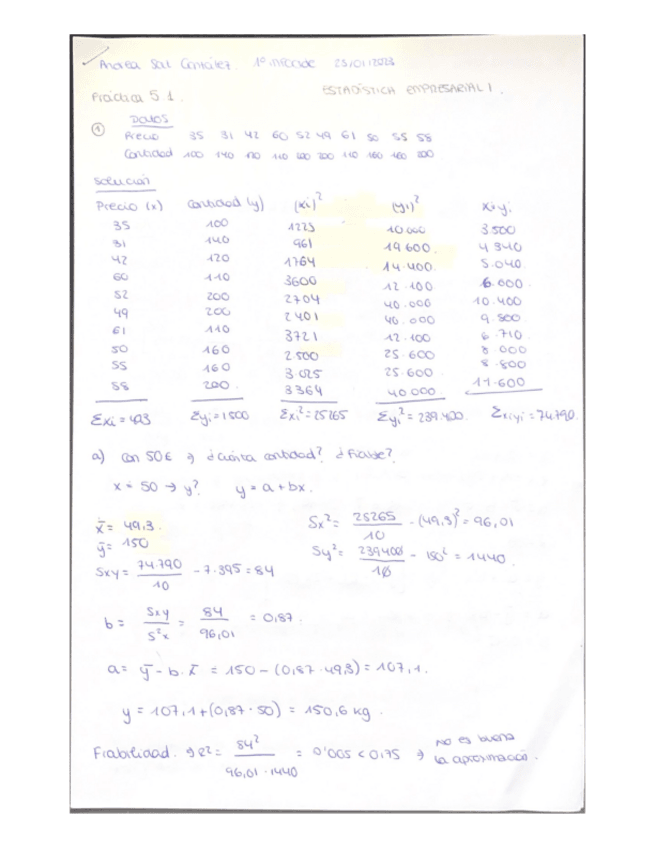 Andrea Sal González. 1º INECODE 23/01/2023
ESTADÍSTICA EMPRESARIAL I.
Práctica 5.1.
① DATOS
Precio 35 31 42 60 52 49 61 50 55 58
Cantidad 100 140 120 110 200 200 110 160 160 200
Solución
Precio (x) Cantidad (y) (xi)² (yi)² xi·yi
35 100 1225 10000 3500
31 140 961 19600. 4340
42 120 1764 14.400. 5.040
60 110 3600 12.100 6.600
52 200 2704 40.000 10.400
49 200 2401 40.000 9.800
61 110 3721 12.100 6.710
50 160 2.500 25.600 8 000
55 160 3.025 25.600 8.800
58 200 3364 40000 11.600
Σxi = 493 Σyi = 1500 Σxi² = 25265 Σyi² = 239.400. Σxiyi = 74.790.
a) con 50€ → ¿cuánta cantidad? ¿Fiable?
x = 50 → y? y = a + bx.
x̄ = 49,3. Sx² = 25265/10 - (49,3)² = 96,01
ȳ = 150 Sy² = 239400/10 - 150² = 1440.
Sxy = 74.790/10 - 7.395 = 84
b = Sxy/S²x = 84/96,01 = 0,87.
a = ȳ - b.x̄ = 150 - (0,87·49,3) = 107,1.
y = 107,1 + (0,87·50) = 150,6 kg.
Fiabilidad. → R² = 84²/96,01·1440 = 0'005 < 0,75 → No es buena
la aproximación.